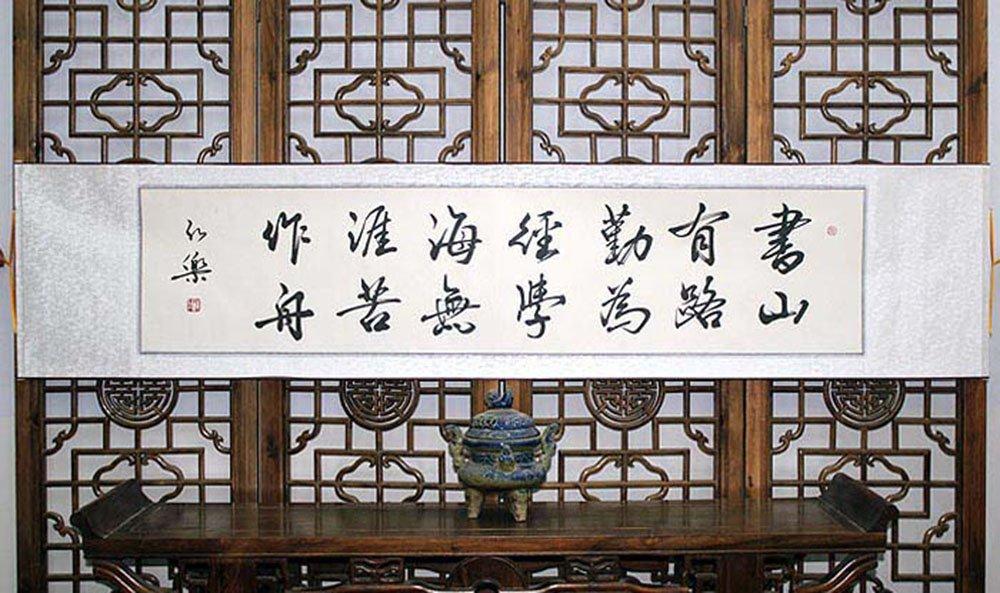 書山
有路
勤為
徑學
海無
涯苦
作舟
弘樂